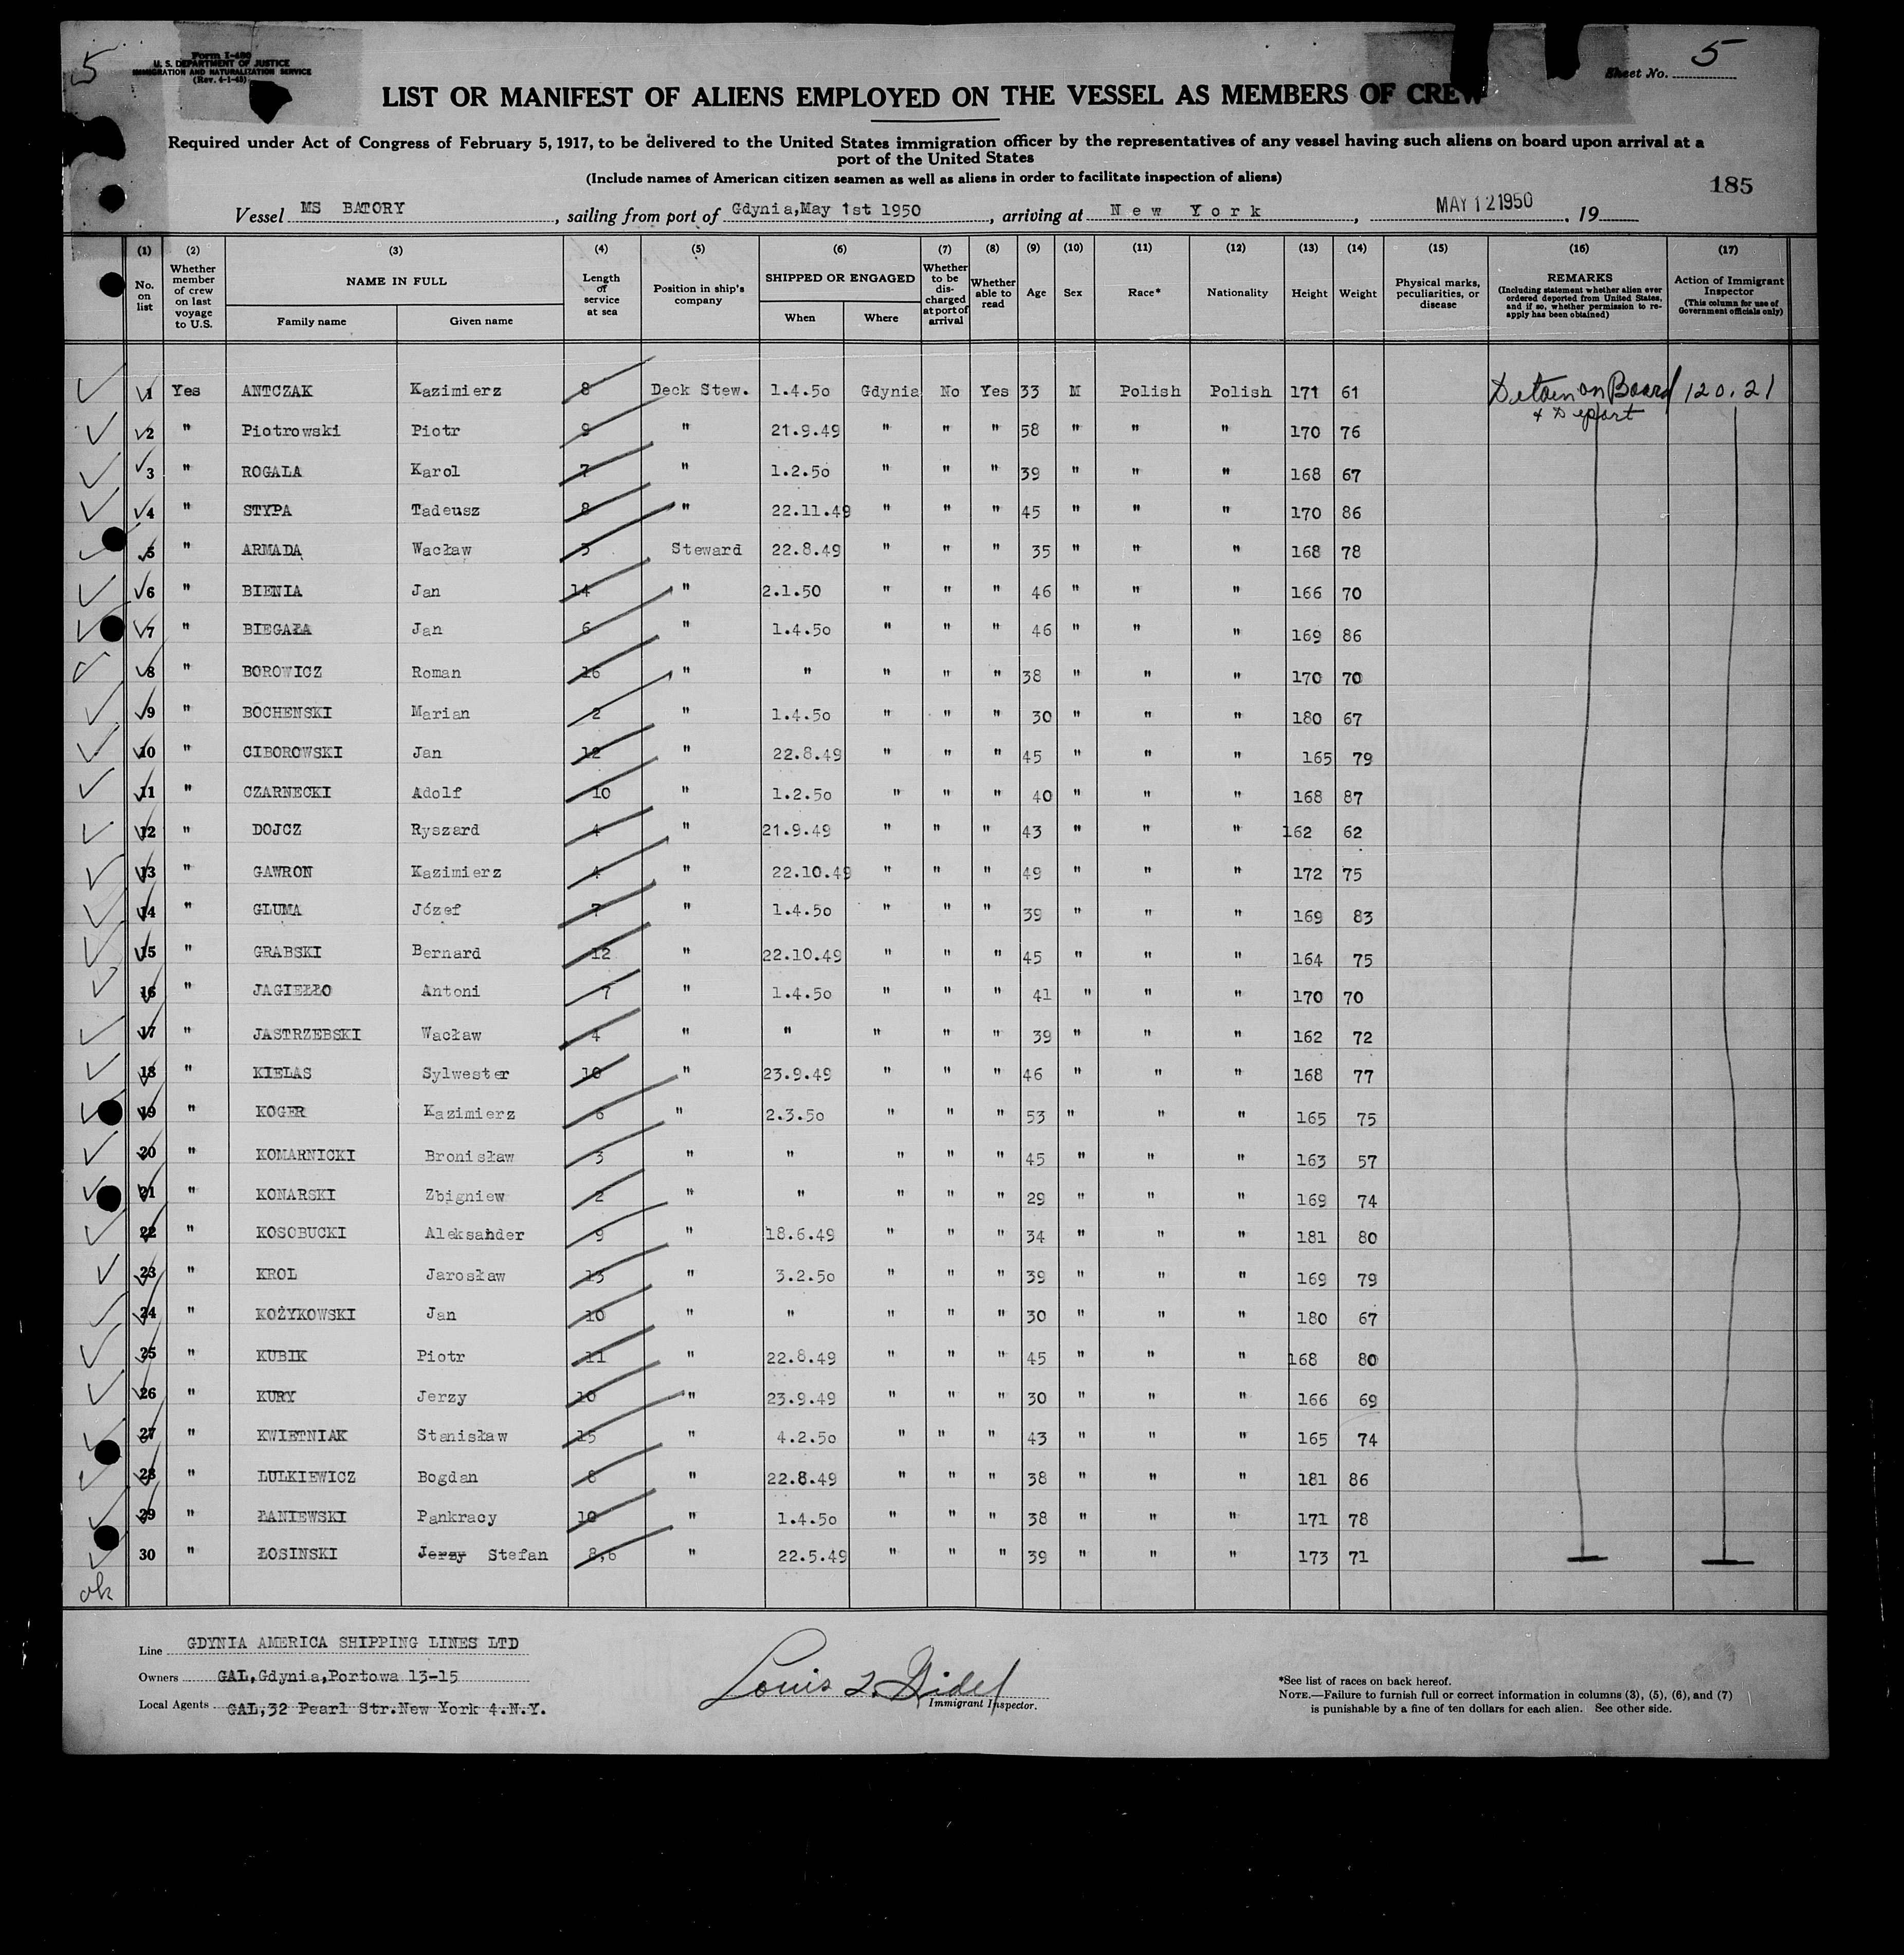 5
Form I-480
U. S. DEPARTMENT OF JUSTICE
IMMIGRATION AND NATURALIZATION SERVICE
(Rev. 4-1-45)
Sheet No. 5
LIST OR MANIFEST OF ALIENS EMPLOYED ON THE VESSEL AS MEMBERS OF CREW
Required under Act of Congress of February 5, 1917, to be delivered to the United States immigration officer by the representatives of any vessel having such aliens on board upon arrival at a
port of the United States
(Include names of American citizen seamen as well as aliens in order to facilitate inspection of aliens)
185
Vessel MS BATORY, sailing from port of Gdynia,May 1st 1950, arriving at New York, MAY 12 1950, 19
(1) No. on list (2) Whether member of crew on last voyage to U.S. (3) NAME IN FULL Family name Given name (4) Length of service at sea (5) Position in ship's company (6) SHIPPED OR ENGAGED When Where (7) Whether to be discharged at port of arrival (8) Whether able to read (9) Age (10) Sex (11) Race* (12) Nationality (13) Height (14) Weight (15) Physical marks, peculiarities, or disease (16) REMARKS (Including statement whether alien ever ordered deported from United States, and if so, whether permission to re-apply has been obtained) (17) Action of Immigrant Inspector (This column for use of Government officials only)
1 Yes ANTCZAK Kazimierz 8 Deck Stew. 1.4.50 Gdynia No Yes 33 M Polish Polish 171 61 Detain on Board 120.21
& Deport
2 " Piotrowski Piotr 9 " 21.9.49 " " " 58 " " " 170 76
3 " ROGALA Karol 7 " 1.2.50 " " " 39 " " " 168 67
4 " STYPA Tadeusz 8 " 22.11.49 " " " 45 " " " 170 86
5 " ARMADA Wacław 3 Steward 22.8.49 " " " 35 " " " 168 78
6 " BIENIA Jan 14 " 2.1.50 " " " 46 " " " 166 70
7 " BIEGAŁA Jan 6 " 1.4.50 " " " 46 " " " 169 86
8 " BOROWICZ Roman 16 " " " " " 38 " " " 170 70
9 " BOCHENSKI Marian 2 " 1.4.50 " " " 30 " " " 180 67
10 " CIBOROWSKI Jan 12 " 22.8.49 " " " 45 " " " 165 79
11 " CZARNECKI Adolf 10 " 1.2.50 " " " 40 " " " 168 87
12 " DOJCZ Ryszard 4 " 21.9.49 " " " 43 " " " 162 62
13 " GAWRON Kazimierz 4 " 22.10.49 " " " 49 " " " 172 75
14 " GLUMA Józef 7 " 1.4.50 " " " 39 " " " 169 83
15 " GRABSKI Bernard 12 " 22.10.49 " " " 45 " " " 164 75
16 " JAGIEŁŁO Antoni 7 " 1.4.50 " " " 41 " " " 170 70
17 " JASTRZEBSKI Wacław 4 " " " " " 39 " " " 162 72
18 " KIELAS Sylwester 10 " 23.9.49 " " " 46 " " " 168 77
19 " KOGER Kazimierz 6 " 2.3.50 " " " 53 " " " 165 75
20 " KOMARNICKI Bronisław 3 " " " " " 45 " " " 163 57
21 " KONARSKI Zbigniew 2 " " " " " 29 " " " 169 74
22 " KOSOBUCKI Aleksander 9 " 18.6.49 " " " 34 " " " 181 80
23 " KROL Jarosław 13 " 3.2.50 " " " 39 " " " 169 79
24 " KOŻYKOWSKI Jan 10 " " " " " 30 " " " 180 67
25 " KUBIK Piotr 11 " 22.8.49 " " " 45 " " " 168 80
26 " KURY Jerzy 10 " 23.9.49 " " " 30 " " " 166 69
27 " KWIETNIAK Stanisław 15 " 4.2.50 " " " 43 " " " 165 74
28 " LULKIEWICZ Bogdan 8 " 22.8.49 " " " 38 " " " 181 86
29 " ŁANIEWSKI Pankracy 10 " 1.4.50 " " " 38 " " " 171 78
30 " ŁOSINSKI Jerzy Stefan 8,6 " 22.5.49 " " " 39 " " " 173 71
ok
Line GDYNIA AMERICA SHIPPING LINES LTD
Owners GAL,Gdynia,Portowa 13-15
Local Agents GAL,32 Pearl Str.New York 4.N.Y.
Louis
Immigrant Inspector.
*See list of races on back hereof.
NOTE.—Failure to furnish full or correct information in columns (3), (5), (6), and (7)
is punishable by a fine of ten dollars for each alien. See other side.